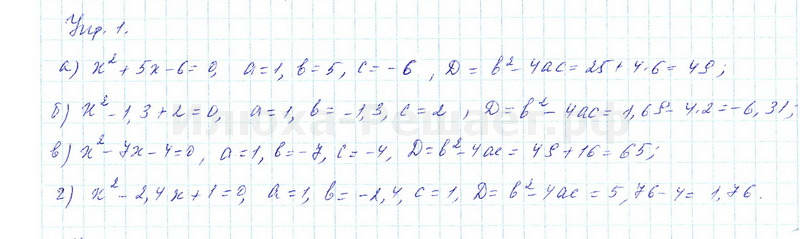 Упр. 1.
а) x² + 5x - 6 = 0, a = 1, b = 5, c = -6, D = b² - 4ac = 25 + 4·6 = 49;
б) x² - 1,3 + 2 = 0, a = 1, b = -1,3, c = 2, D = b² - 4ac = 1,69 - 4·2 = -6,31;
в) x² - 7x - 4 = 0, a = 1, b = -7, c = -4, D = b² - 4ac = 49 + 16 = 65;
г) x² - 2,4x + 1 = 0, a = 1, b = -2,4, c = 1, D = b² - 4ac = 5,76 - 4 = 1,76.
Илюха-Решает.рф